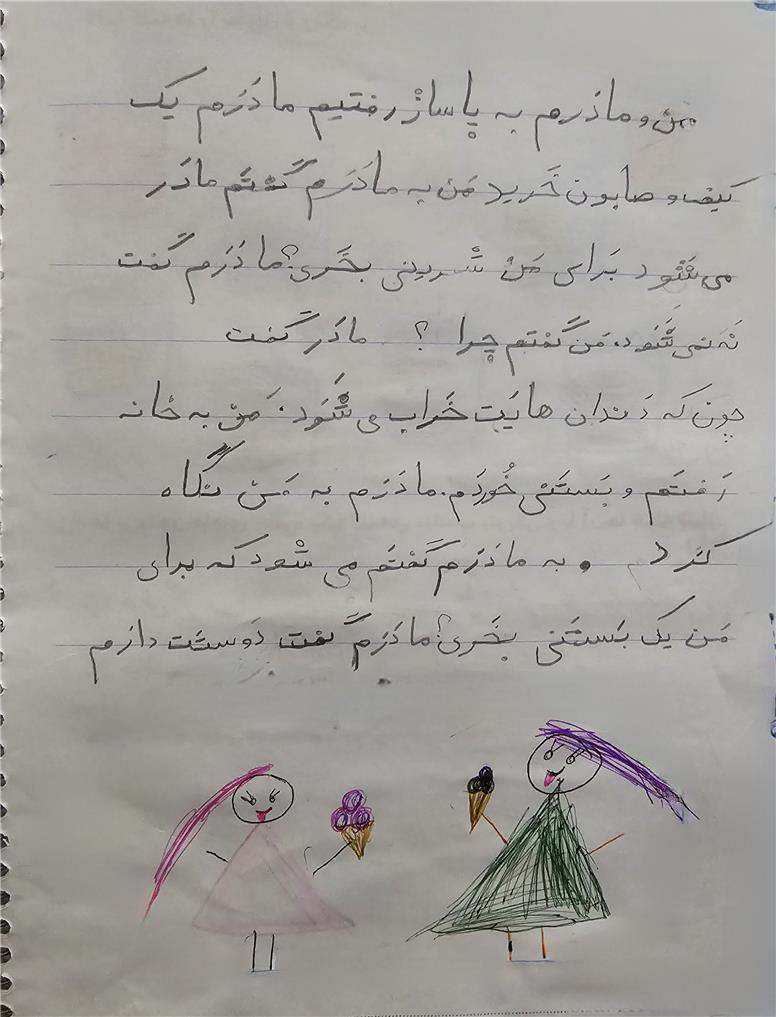 من و مادرم به پاساژ رفتیم مادَرَم یک
کیف و صابون خَرید مَن به مادَرَم گُفتَم مادَر
می شَوَد بَرای مَنْ شیرینی بخَری؟ مادَرَم گُفت
نَه نمی شَوَد. مَن گُفتم چرا ؟ مادَر گُفت
چون که دَندان هایَت خَراب می شَوَد. مَن به خانه
رَفتَم و بَستَنی خُوردَم. مادَرَم به مَنْ نگاه
کَرد و به مادَرَم گُفتَم می شود که برای
مَن یک بَستَنی بخَری؟ مادَرَم گفت دوستت دارم